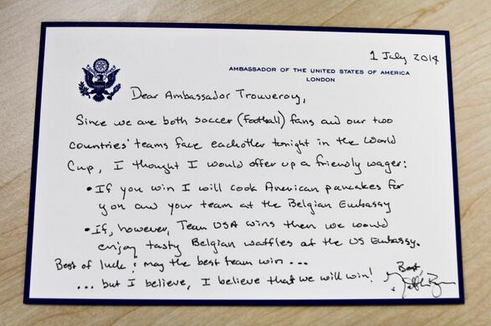 1 July 2014
AMBASSADOR OF THE UNITED STATES OF AMERICA
LONDON
Dear Ambassador Trouveroy,
Since we are both soccer (football) fans and our two
countries' teams face eachother tonight in the World
Cup, I thought I would offer up a friendly wager:
• If you win I will cook American pancakes for
you and your team at the Belgian Embassy
• If, however, Team USA wins then we would
enjoy tasty Belgian waffles at the US Embassy.
Best of luck & may the best team win ...
... but I believe, I believe that we will win!
Best,